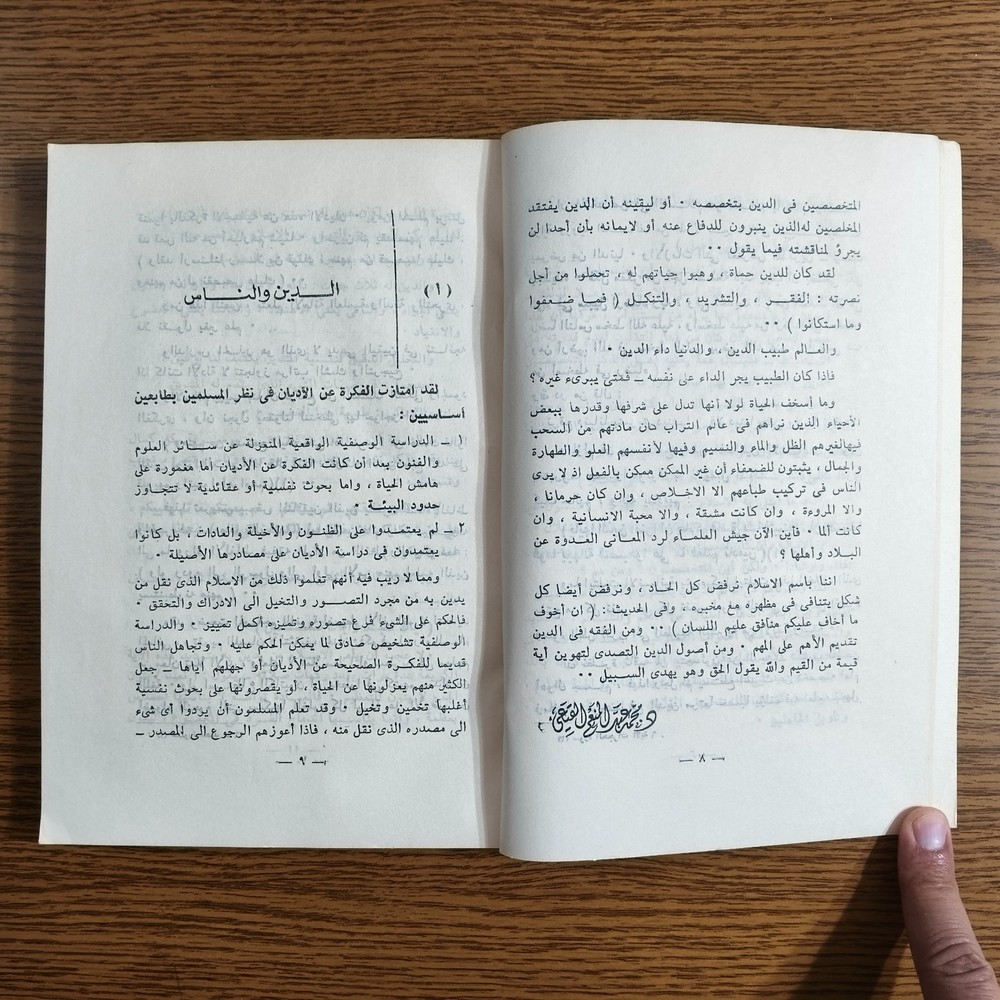 المتخصصين فى الدين بتخصصه ٠ أو ليقينه أن الدين يفتقد
المخلصين له الذين ينبرون للدفاع عنه أو لايمانه بأن أحدا لن
يجرؤ لمناقشته فيما يقول ٠٠
لقد كان للدين حماة ، وهبوا حياتهم له ، تحملوا من أجل
نصرته : الفقـــر ، والتشريد ، والتنكيل ( فما ضـعفوا
وما استكانوا ) ٠٠
والعـالم طبيب الدين ، والدنيا داء الدين ٠
فاذا كان الطبيب يجر الداء على نفسه ــ فمتى يبرىء غيره ؟
وما أسخف الحياة لولا أنها تدل على شرفها وقدرها ببعض
الأحياء الذين نراهم فى عالم التراب كأن مادتهم من السحب
فيها لغيرهم الظل والماء والنسيم وفيها لأنفسهم العلو والطهارة
والجمال ، يثبتون للضعفاء أن غير الممكن ممكن بالفعل اذ لا يرى
الناس فى تركيب طباعهم الا الاخلاص ، وان كان حرمانا ،
والا المروءة ، وان كانت مشقة ، والا محبة الانسانية ، وان
كانت ألما ٠ فأين الآن جيش العلمـاء لرد المعـانى العـدوة عن
البلاد وأهلها ؟
اننا باسم الاسلام نرفض كل الحـاد ، ونرفض أيضـا كل
شكل يتنافى فى مظهره مع مخبره ، وفى الحديث : ( ان أخوف
ما أخاف عليكم منافق عليم اللسـان ) ٠٠ ومن الفقه فى الدين
تقديم الأهم على المهم ٠ ومن أصول الدين التصدى لتهوين أية
قيمة من القيم والله يقول الحق وهو يهدى السـبيل ٠٠
د. محمد عبد المنعم القيعى
— ٨ —
( ١ )
الـــدين والنـــاس
لقد امتازت الفكرة عن الأديان فى نظر المسلمين بطابعين
أسـاسيين :
١ ــ الدراسة الوصفية الواقعية المنعزلة عن ســائر العلوم
والفنون بعد أن كانت الفكرة عن الأديان اما مغمورة على
هامش الحياة ، واما بحوث نفسية أو عقائدية لا تتجـاوز
حدود البيئـة ٠
٢ ــ لم يعتمـدوا على الظنـون والأخيلة والعادات ، بل كانوا
يعتمدون فى دراسة الأديان على مصادرها الأصيلة ٠
ومما لا ريب فيه أنهم تعلموا ذلك من الاسلام الذى نقل من
يدين به من مجرد التصـور والتخيل الى الادراك والتحقق ٠
فالحكم على الشىء فرع تصوره وتميزه أكمل تمييز ٠ والدراسة
الوصفية تشخيص صادق لما يمكن الحكم عليه ٠ وتجاهل الناس
قديما للفكرة الصحيحة عن الأديان أو جهلهم أياها ــ جعل
الكثير منهم يعزلونها عن الحياة ، أو يقصرونها على بحوث نفسية
أغلبها تخمين وتخيل ٠ وقد تعلم المسلمون أن يردوا أى شىء
الى مصدره الذى نقل منه ، فاذا أعوزهم الرجوع الى المصدر ــ
— ٩ —